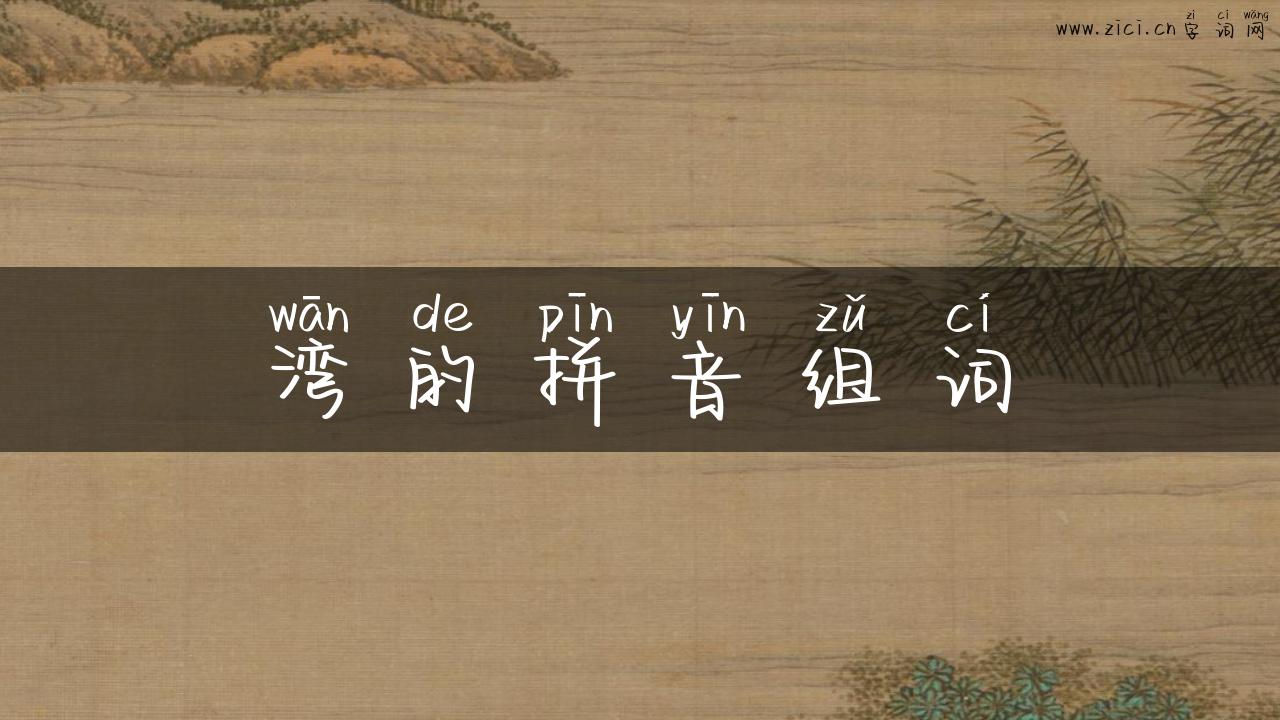 zì cí wǎng
www.zici.cn 字词网
wān de pīn yīn zǔ cí
湾的拼音组词